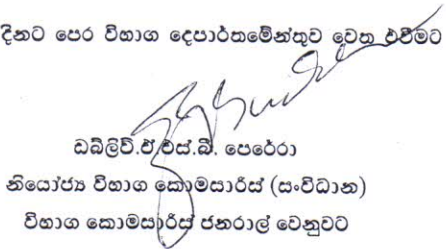 දිනට පෙර විභාග දෙපාර්තමේන්තුව වෙත එවීමට
ඩබ්ලිව්.ඒ.එස්.බී. පෙරේරා
නියෝජ්‍ය විභාග කොමසාරිස් (සංවිධාන)
විභාග කොමසාරිස් ජනරාල් වෙනුවට